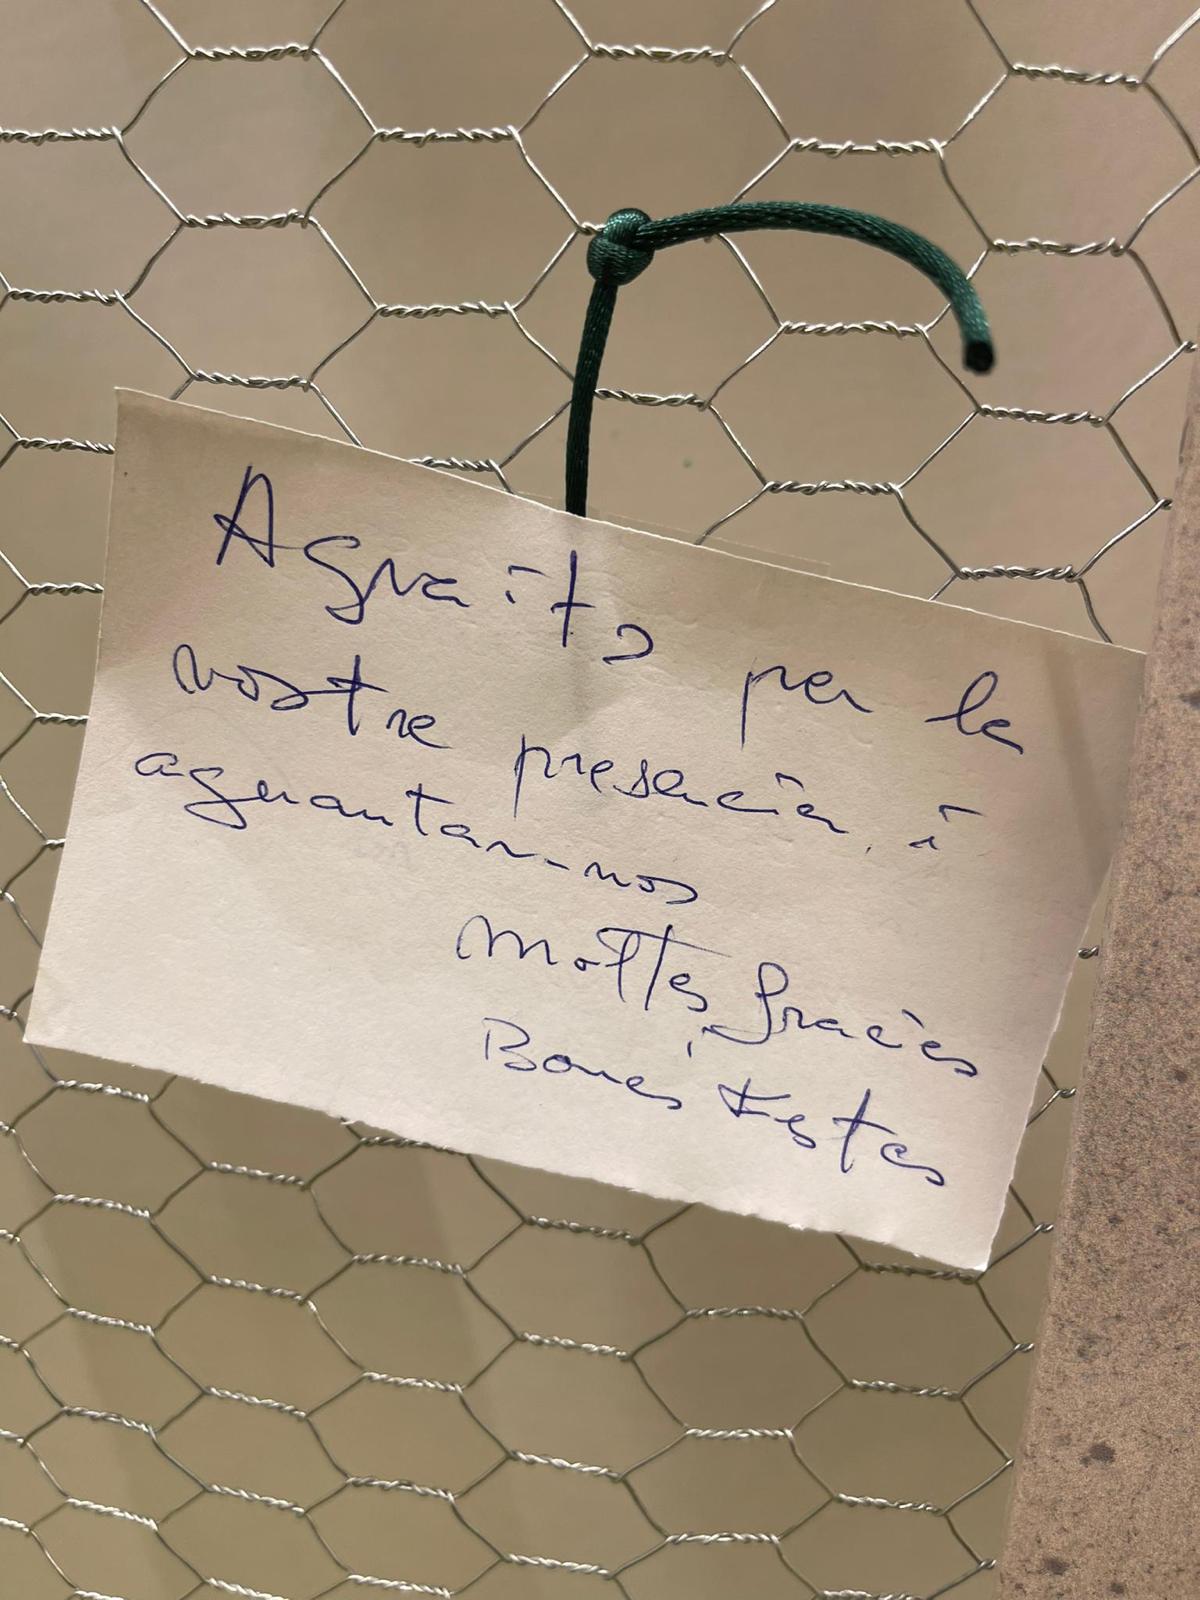 Agraïts per la
vostre presencia, i
aguantar-nos
Moltes Gracies
i
Bones Festes